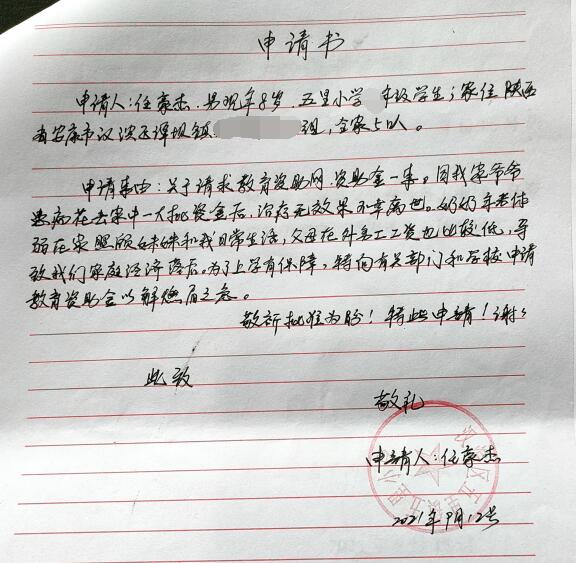 申请书
申请人:任家杰.男现年8岁.五里小学 年级学生;家住陕西
省安康市汉滨区谭坝镇 组,全家5口人。
申请事由:关于请求教育资助网.资助金一事。因我家爷爷
患病花去家中一大批资金后,治疗无效果不幸离世。奶奶年老体
弱在家照顾妹妹和我日常生活,父母在外务工工资也比较低,导
致我们家庭经济落后。为了上学有保障,特向有关部门和学校申请
教育资助金以解燃眉之急。
敬祈批准为盼!特此申请!谢谢
此致
敬礼
申请人:任家杰
2021年9月12号